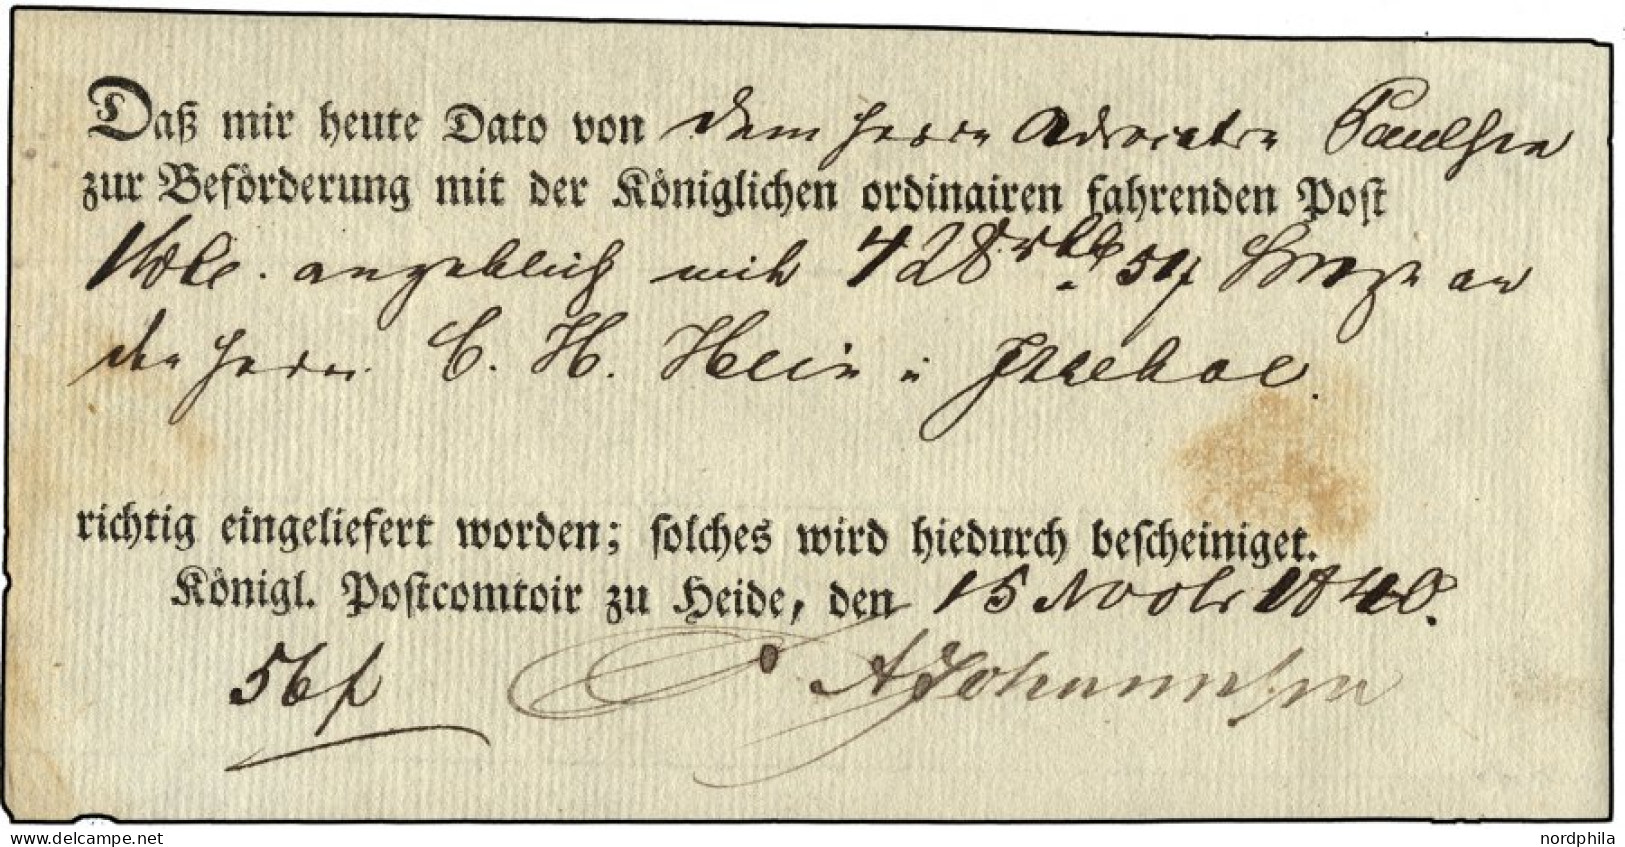 Daß mir heute Dato von dem Herrn Advocaten Paulsen
zur Beförderung mit der Königlichen ordinairen fahrenden Post
angeblich mit 428 rbth an
den Herrn C. H. Hein in Itzehoe.
richtig eingeliefert worden; solches wird hiedurch bescheiniget.
Königl. Postcomtoir zu Heide, den 15 Novbr 1840.
56 ß Johannsen
delcampe.net
nordphila